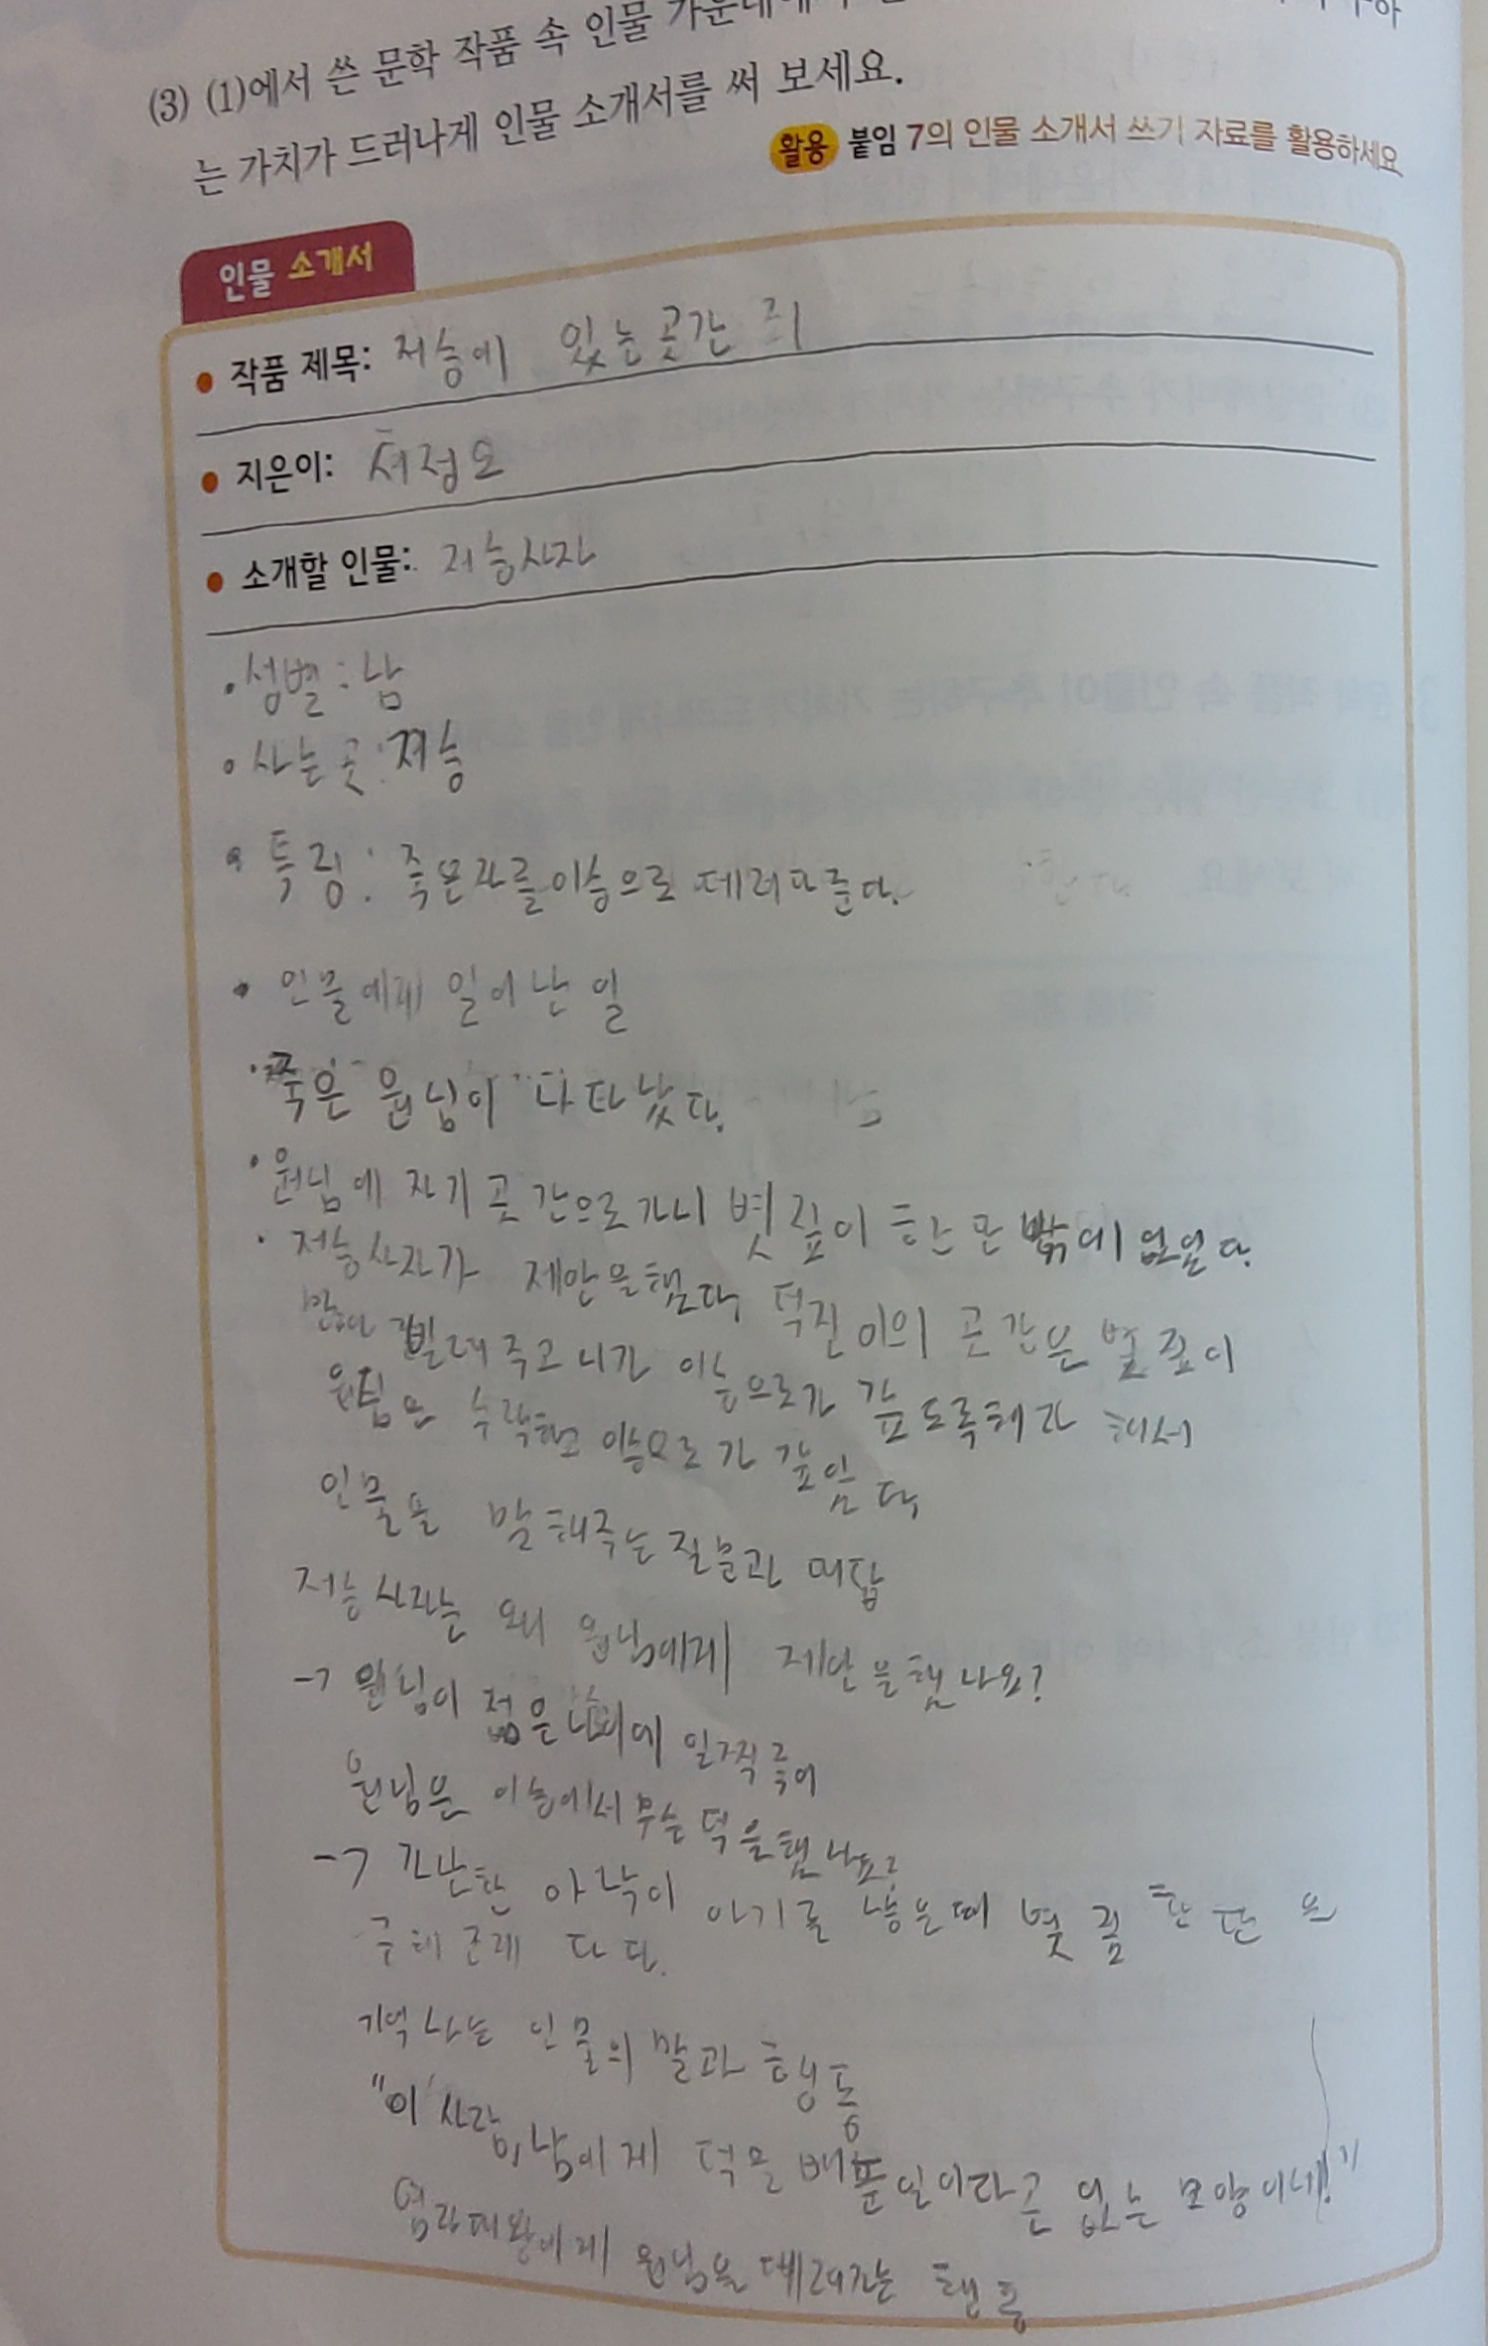 (3) (1)에서 쓴 문학 작품 속 인물 가운데에서
는 가치가 드러나게 인물 소개서를 써 보세요.
활용 붙임 7의 인물 소개서 쓰기 자료를 활용하세요
인물 소개서
• 작품 제목: 저승에 있는 곳간
• 지은이: 서정오
• 소개할 인물: 저승사자
• 성별 : 남
• 사는 곳 : 저승
• 특징 : 죽은자를 이승으로 데려다준다.
• 인물에게 일어난 일
• 죽은 원님이 나타났다.
• 원님에 자기 곳간으로가니 볏짚이 한단 밖에 없었다.
• 저승사자가 제안을했다, 덕진이의 곳간은 볓짚이
빌려주고 니가 이승으로가 갚도록해라 해서
원님은 수락하고 이승으로가 갚았다,
인물을 말해주는 질문과 대답
저승사자는 왜 원님에게 제안을했나요?
→ 원님이 젊은 나이에 일찍 죽어
원님은 이승에서 무슨 덕을했나요?
→ 가난한 아낙이 아기를 낳을때 볓짚 한단을
구해 준게 다다.
기억나는 인물의 말과 행동
"이 사람, 남에게 덕을 배푼일이라곤 없는 모양이네!"
염라대왕에게 원님을 데려가는 행동